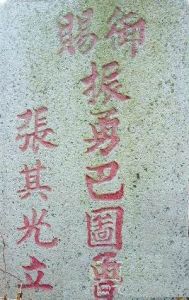 御賜
振勇巴圖魯
張其光立